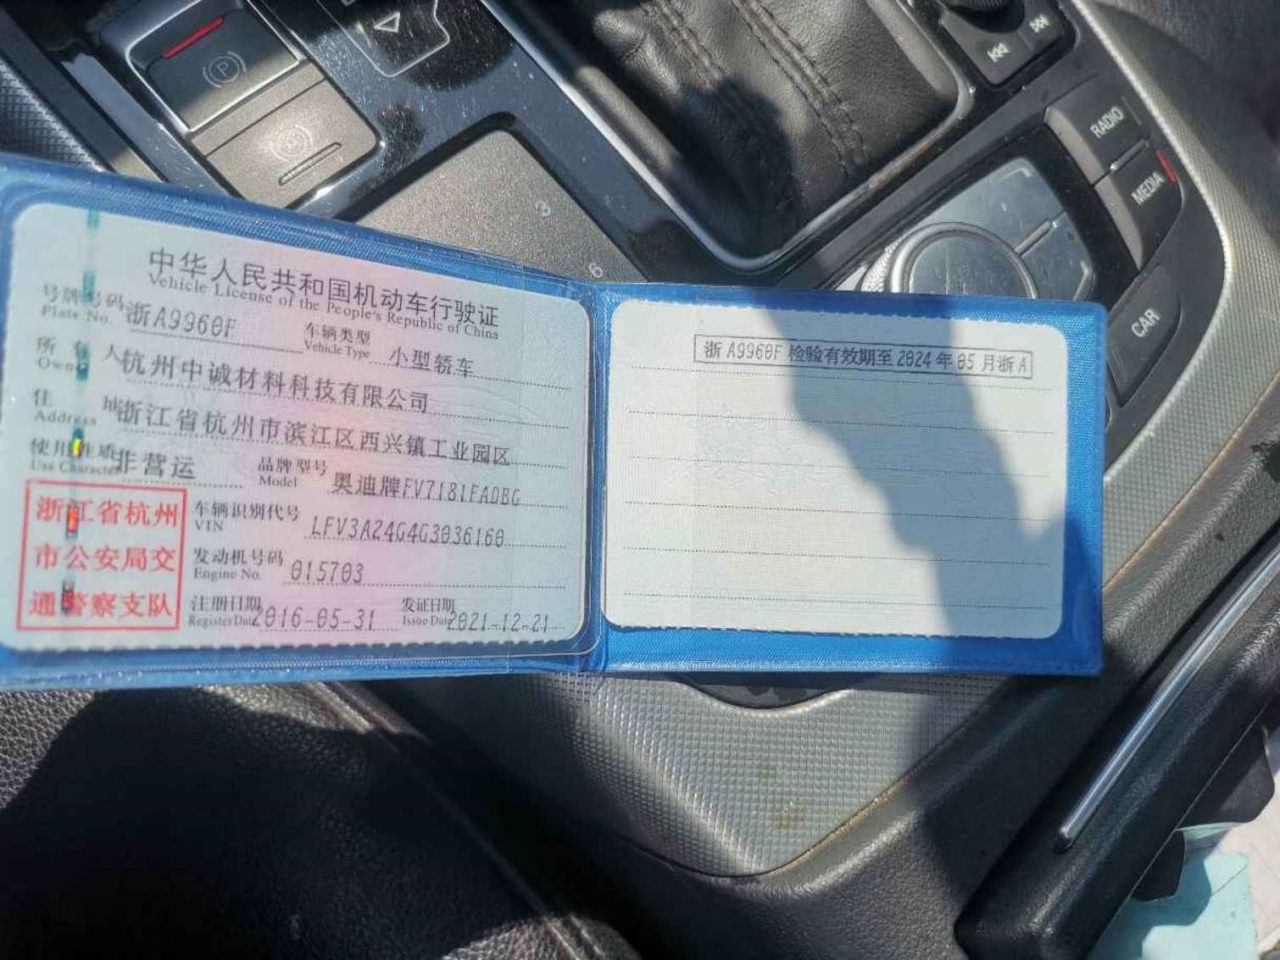 中华人民共和国机动车行驶证
Vehicle License of the People's Republic of China
号牌号码 浙A9960F 车辆类型 小型轿车
Plate No. Vehicle Type
所有人 杭州中诚材料科技有限公司
Owner
住址 浙江省杭州市滨江区西兴镇工业园区
Address
使用性质 非营运 品牌型号 奥迪牌FV7181FADBG
Use Character Model
浙江省杭州
市公安局交
通警察支队
车辆识别代号 LFV3A24G4G3036160
VIN
发动机号码 015703
Engine No.
注册日期 2016-05-31 发证日期 2021-12-21
Register Date Issue Date
浙A9960F检验有效期至2024年05月浙A
P
A
3
6
RADIO
MEDIA
CAR